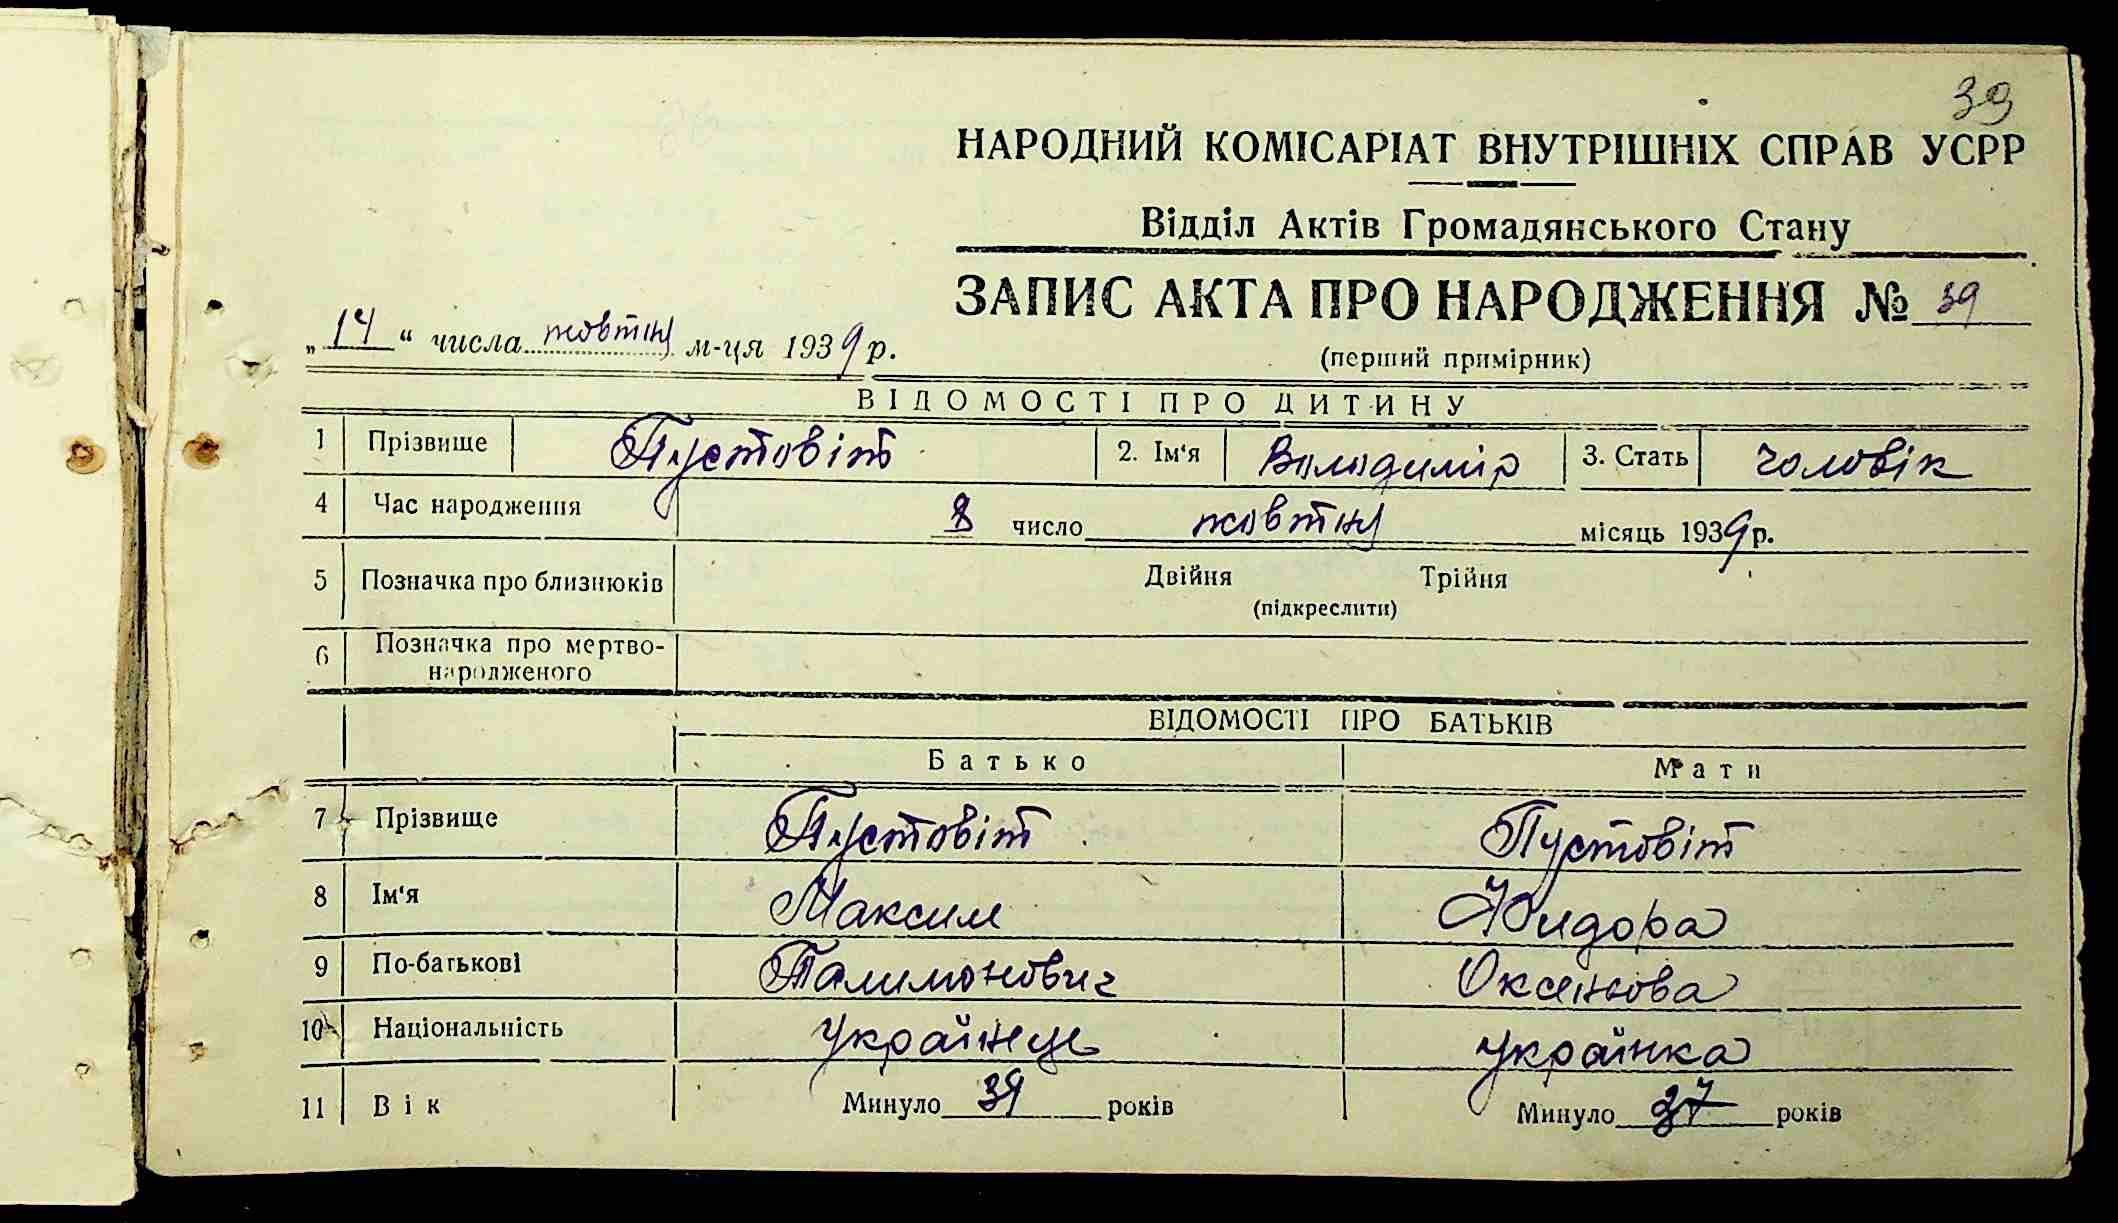 39
НАРОДНИЙ КОМІСАРІАТ ВНУТРІШНІХ СПРАВ УСРР
Відділ Актів Громадянського Стану
ЗАПИС АКТА ПРО НАРОДЖЕННЯ № 39
„14“ числа жовтня м-ця 1939 р.
(перший примірник)
ВІДОМОСТІ ПРО ДИТИНУ
1 Прізвище Пустовіт 2. Ім'я Володимір 3. Стать чоловік
4 Час народження 8 число жовтня місяць 1939 р.
5 Позначка про близнюків Двійня Трійня
(підкреслити)
6 Позначка про мертво-
народженого
ВІДОМОСТІ ПРО БАТЬКІВ
Батько Мати
7 Прізвище Пустовіт Пустовіт
8 Ім'я Максим
9 По-батькові Палимонович Оксенова
10 Національність українець українка
11 Вік Минуло 39 років Минуло 37 років